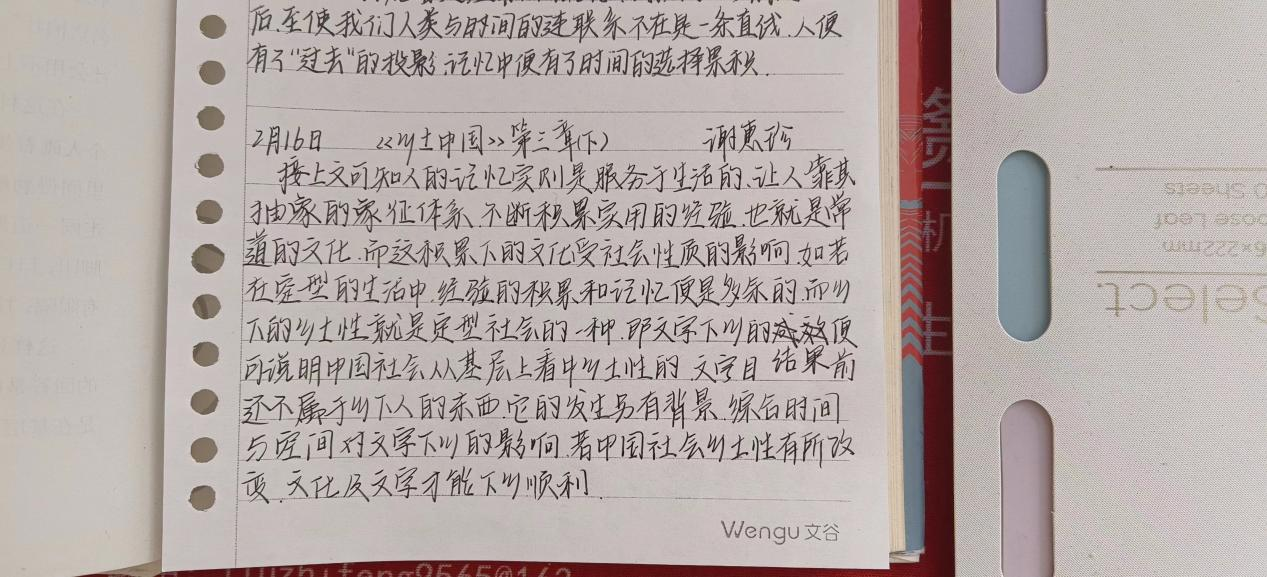 后,至使我们人类与时间的连联系不在是一条直线.人便
有了“过去”的投影,记忆中便有了时间的选择累积.
2月16日 《乡土中国》第三章(下) 谢惠珍
接上文可知人的记忆实则是服务于生活的,让人靠其
抽象的象征体系,不断积累实用的经验.也就是常
道的文化.而这积累下的文化受社会性质的影响.如若
在定型的生活中,经验的积累和记忆便是多余的.而乡
下的乡土性就是定型社会的一种.即文字下乡的成效便
可说明中国社会从基层上看中乡土性的.文字目 结果前
还不属于乡下人的东西.它的发生另有背景.综合时间
与空间对文字下乡的影响.若中国社会乡土性有所改
变.文化及文字才能下乡顺利.
Wengu 文谷
机
生
0 Sheets
oose Leaf
6×222mm
Select.